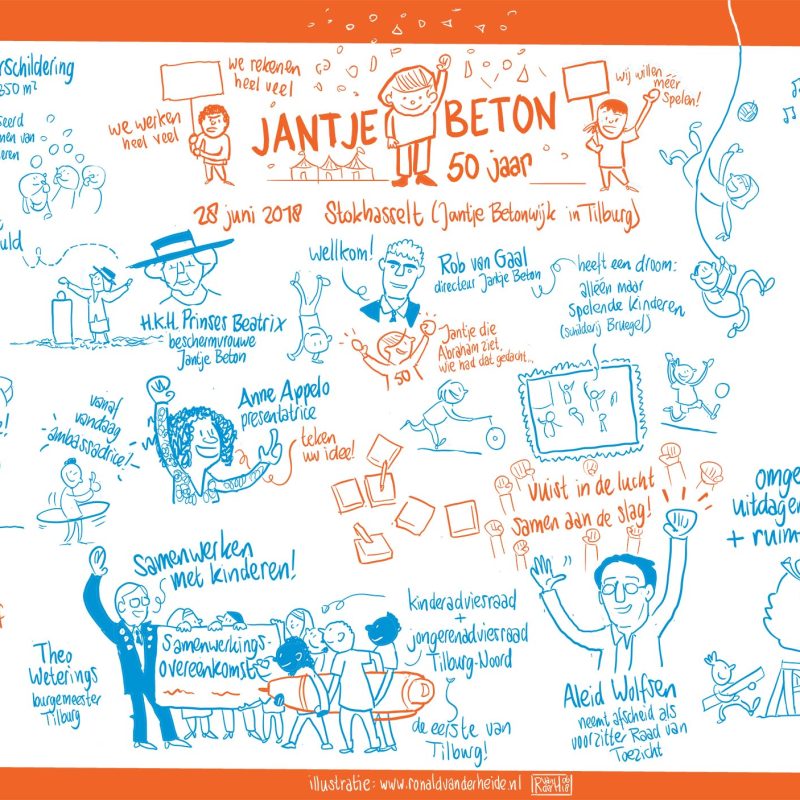 rschildering
350 m²
seerd
men van
eren
uld
we werken
heel veel
we rekenen
heel veel
JANTJE BETON
50 jaar
wij willen
méér
spelen!
28 juni 2018 Stokhasselt (Jantje Betonwijk in Tilburg)
H.K.H. Prinses Beatrix
beschermvrouwe
Jantje Beton
wellkom!
Rob van Gaal
directeur Jantje Beton
heeft een droom:
alléén maar
spelende kinderen
(schilderij Bruegel)
50
Jantje die
Abraham ziet,
wie had dat gedacht...
!
vanaf
vandaag
ambassadrice!
Anne Appelo
presentatrice
teken
uw idee!
vuist in de lucht
samen aan de slag!
omge
uitdagen
+ ruim
Samenwerken
met kinderen!
Theo
Weterings
burgemeester
Tilburg
Samenwerkings-
overeenkomst
kinderadviesraad
+
jongerenadviesraad
Tilburg-Noord
de eerste van
Tilburg!
Aleid Wolfsen
neemt afscheid als
voorzitter Raad van
Toezicht
illustratie: www.ronaldvanderheide.nl